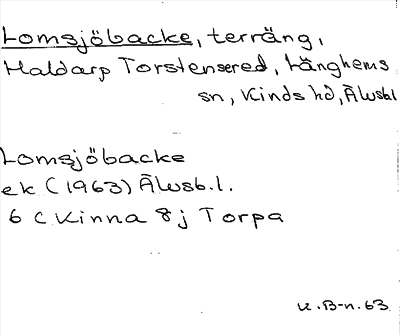 Lomsjöbacke, terräng,
Haldarp Torstensered, Länghems
sn, Kinds hd, Älvsbl
Lomsjöbacke
ek (1963) Älvsb.l.
6 C Kinna 8j Torpa
K.B-n.63